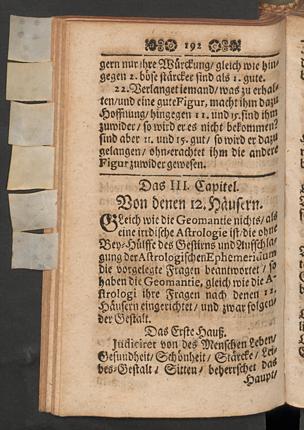 192
gern nur ihre Würckung/ gleich wie hin
gegen 2. böse stärcker sind als 1. gute.
22. Verlanget iemand/ was zu erhal
ten/und eine gute Figur, macht ihm dazu
Hoffnung/ hingegen 11. und 15. sind ihm
zuwider/ so wird er es nicht bekommen?
sind aber 11. und 15. gut/ so wird er dazu
gelangen/ ohnerachtet ihm die andere
Figur zuwider gewesen.
Das III. Capitel.
Von denen 12. Häusern.
Gleich wie die Geomantie nichts/ als
eine irrdische Astrologie ist/die ohne
Bey-Hülffe des Gestirns und Auffschla
gung der Astrologischen Ephemeridum
die vorgelegte Fragen beantwortet/ so
haben die Geomantie, gleich wie die A-
strologi ihre Fragen nach denen 12.
Häusern eingerichtet/ und zwar folgen-
der Gestalt.
Das Erste Hauß.
Judiciret von des Menschen Leben/
Gesundheit/ Schönheit/ Stärcke/ Lei-
bes-Gestalt/ Sitten/ beherrschet das
Haupt/